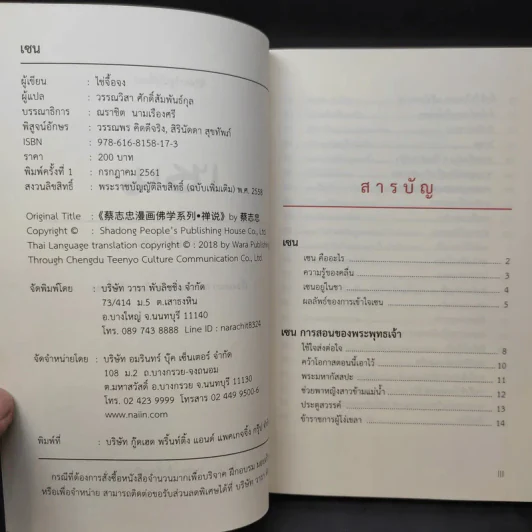 เซน
ผู้เขียน : ไช่จื้อจง
ผู้แปล : วรรณวิสา ศักดิ์สัมพันธ์กุล
บรรณาธิการ : ณราชิต นามเรืองศรี
พิสูจน์อักษร : วรรณพร คิดดีจริง, สิรินัดดา สุขทัพภ์
ISBN : 978-616-8158-17-3
ราคา : 200 บาท
พิมพ์ครั้งที่ 1 : กรกฎาคม 2561
สงวนลิขสิทธิ์ : พระราชบัญญัติลิขสิทธิ์ (ฉบับเพิ่มเติม) พศ. 2558
Original Title :《蔡志忠漫画佛学系列•禅说》by 蔡志忠
Copyright © : Shadong People's Publishing House Co., Ltd
Thai Language translation copyright © : 2018 by Wara Publishing
Through Chengdu Teenyo Culture Communication Co., Ltd.
จัดพิมพ์โดย : บริษัท วารา พับลิชชิ่ง จำกัด
73/414 ม.5 ต.เสาธงหิน
อ.บางใหญ่ จ.นนทบุรี 11140
โทร. 089 743 8888 Line ID : narachit8324
จัดจำหน่ายโดย : บริษัท อมรินทร์ บุ๊ค เซ็นเตอร์ จำกัด
108 ม.2 ถ.บางกรวย-จงถนอม
ต.มหาสวัสดิ์ อ.บางกรวย จ.นนทบุรี 11130
โทร. 02 423 9999 โทรสาร 02 449 9500-6
www.naiin.com
พิมพ์ที่ : บริษัท กู๊ดเฮด พริ้นท์ติ้ง แอนด์ แพคเกจจิ้ง กรุ๊ป
กรณีที่ต้องการสั่งซื้อหนังสือจำนวนมากเพื่อบริจาค ฝึกอบรม
หรือเพื่อจำหน่าย สามารถติดต่อขอรับส่วนลดพิเศษได้ที่ บริษัท วารา
สารบัญ
เซน
เซน คืออะไร 2
ความรู้ของคลื่น 3
เซนอยู่ในชา 4
ผลลัพธ์ของการเข้าใจเซน 5
เซน การสอนของพระพุทธเจ้า
ใช้ใจส่งต่อใจ 8
คว้าโอกาสตอนนี้เอาไว้ 10
พระมหากัสสปะ 11
ช่วยพาหญิงสาวข้ามแม่น้ำ 12
ประตูสวรรค์ 13
ข้าราชการผู้โง่เขลา 14
III